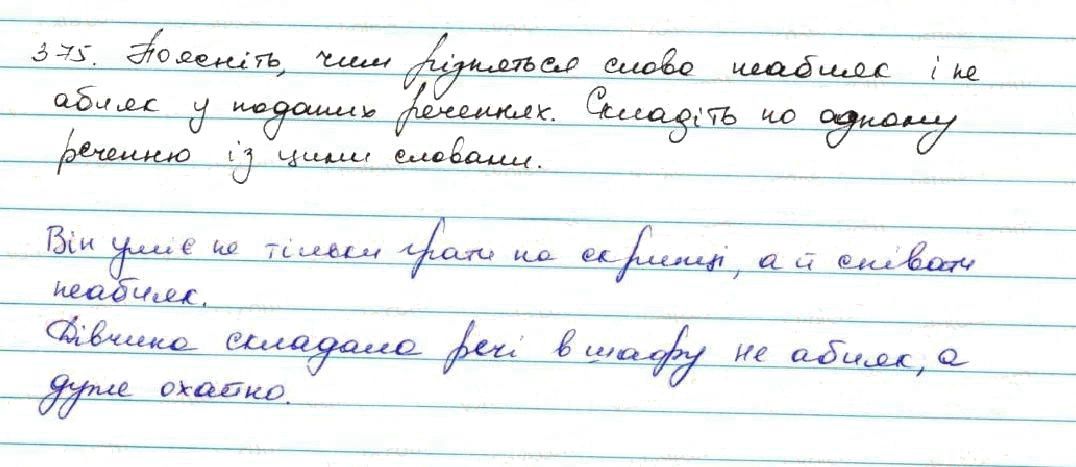 375. Поясніть, чим різняться слова неабияк і не
абияк у поданих реченнях. Складіть по одному
реченню із цими словами.
Він уміє не тільки грати на скрипці, а й співати
неабияк.
Дівчина складала речі в шафу не абияк, а
дуже охайно.